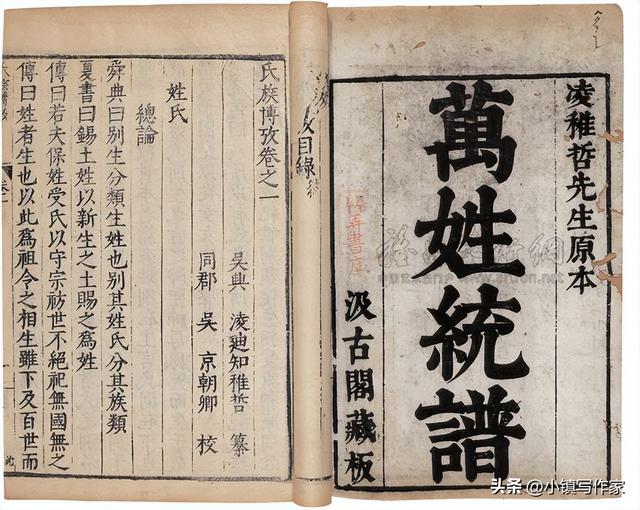 凌稚哲先生原本
萬姓統譜
汲古閣藏板
目錄
氏族博攷卷之一
吳興 凌迪知稚哲 纂
同郡 吳 京朝卿 校
姓氏
總論
舜典曰別生分類生姓也別其姓氏分其族類
夏書曰錫土姓以新生之土賜之為姓
傳曰若夫保姓受氏以守宗祊世不絕祀無國無之
傳曰姓者生也以此為祖令之相生雖下及百世而
头条 @小镇写作家